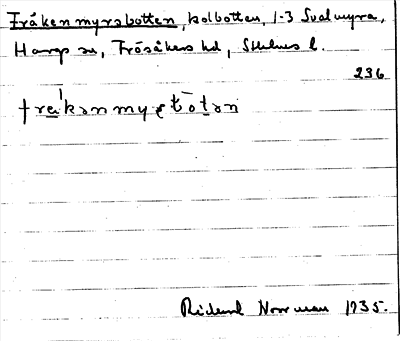 Fräkenmyrsbotten, kolbotten, 1-3 Svalmyra,
Hargs sn, Frösåkers hd, Sthlms l.
236
fre̱kənmyrbo̱tən
Rickard Norrman 1935.